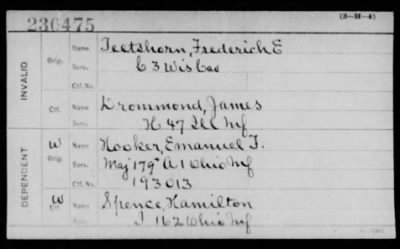 (3-II-4)
230475
INVALID
Orig.
Name Teetshorn, Frederich E
Serv. C 3 Wis Cav
Ctf.
Name Drommond, James
H 47 Ill Inf
DEPENDENT
W Orig.
Name Hooker, Emanuel F.
Serv. Maj 179" A 1 Ohio Inf
Ctf. No. 193013
W Ctf.
Name Spence, Hamilton
Serv. I 162 Ohio Inf